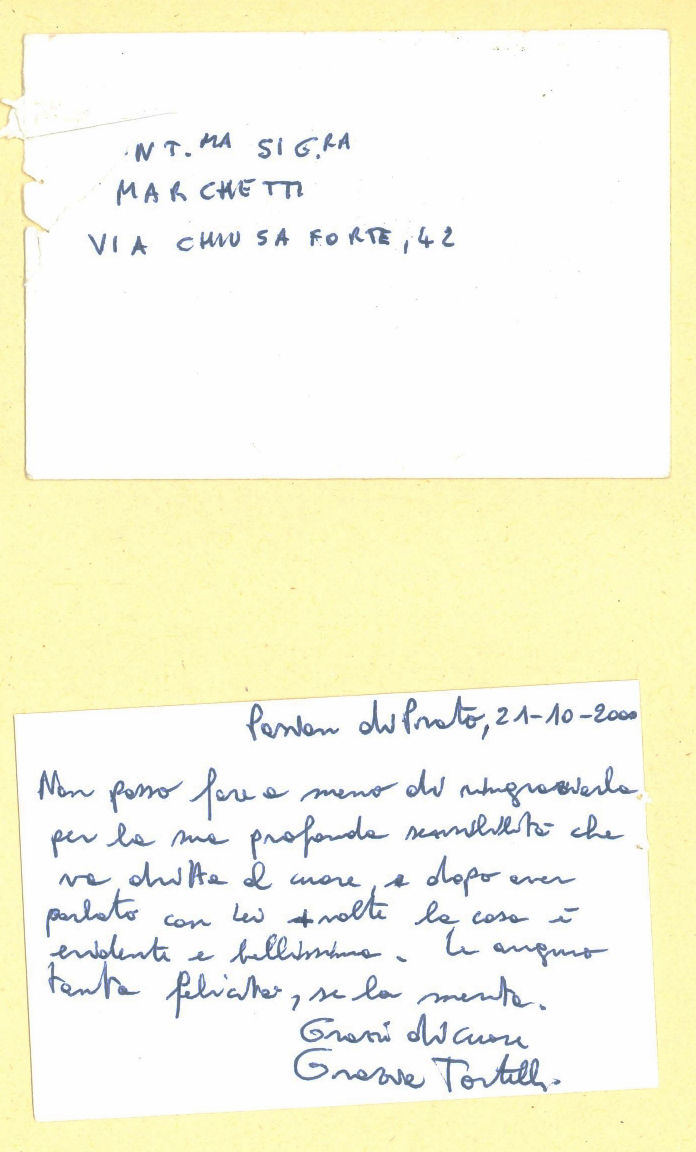 NT.MA SIG.RA
MARCHETTI
VIA CHIUSAFORTE, 42
Pasian di Prato, 21-10-2000
Non posso fare a meno di ringraziarla
per la sua profonda sensibilità che
va diritta al cuore, e dopo aver
parlato con Lei + volte la cosa è
evidente e bellissima. Le auguro
tanta felicità, se la merita.
Grazie di cuore
Grazia